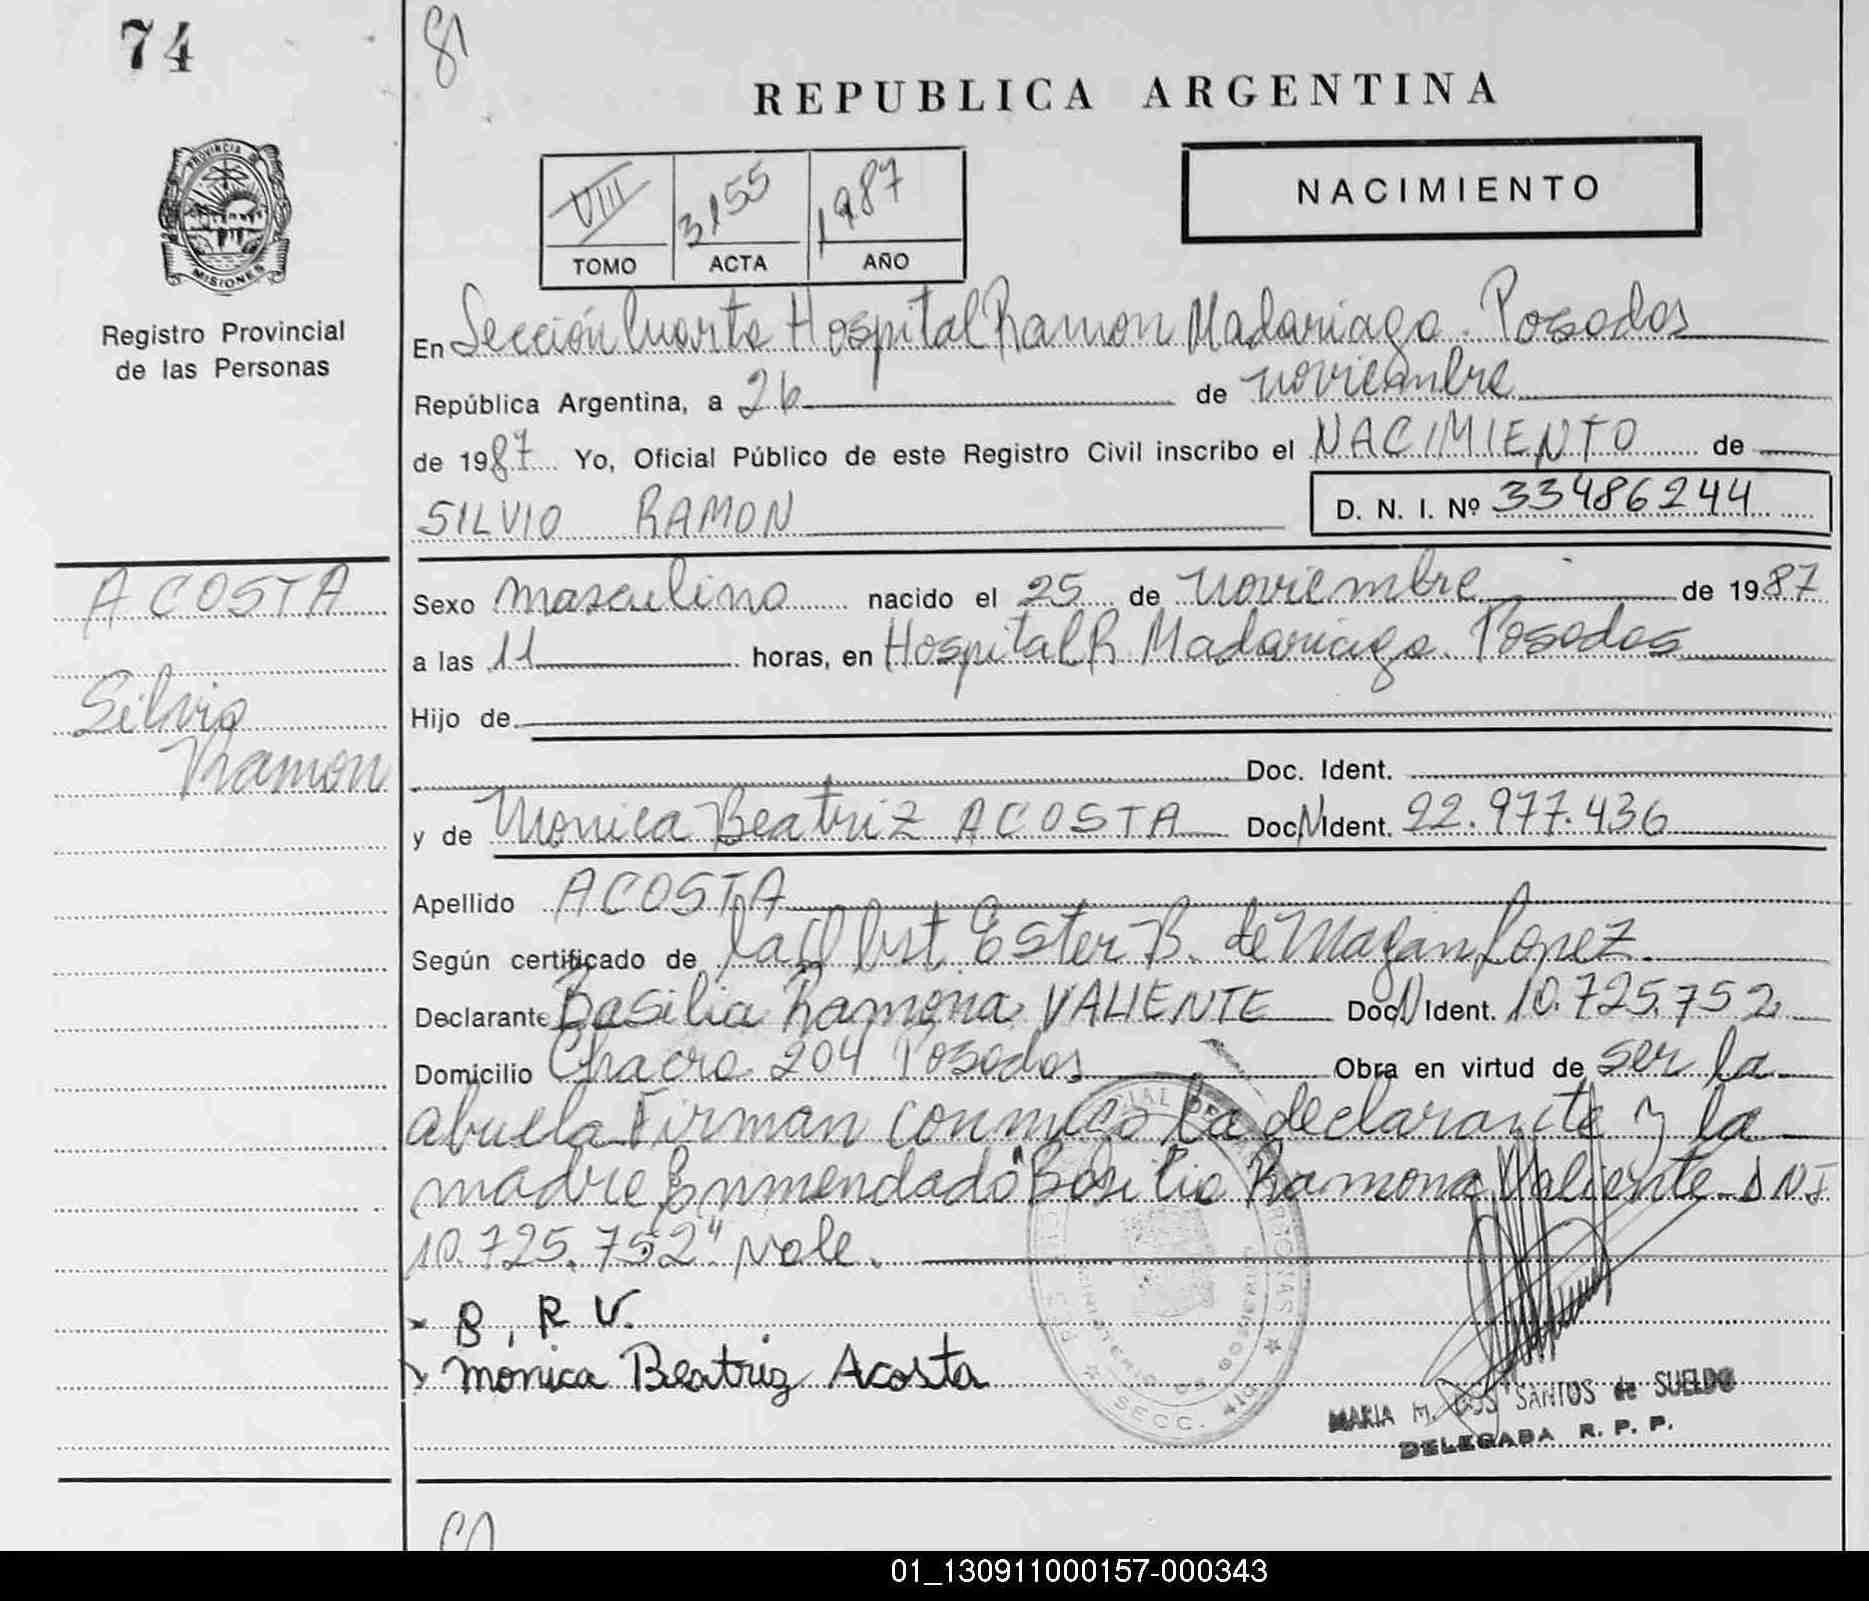 74
81
REPUBLICA ARGENTINA
PROVINCIA DE
MISIONES
Registro Provincial
de las Personas
VIII 3155 1987
TOMO ACTA AÑO
NACIMIENTO
En Sección Cuarta Hospital Ramon Madariaga. Posadas
República Argentina, a 26 de noviembre
de 1987 Yo, Oficial Público de este Registro Civil inscribo el NACIMIENTO de
SILVIO RAMON D. N. I. Nº 33486244
ACOSTA
Silvio
Ramon
Sexo masculino nacido el 25 de noviembre de 1987
a las 11 horas, en Hospital R. Madariaga. Posadas
Hijo de
Doc. Ident.
y de Monica Beatriz ACOSTA Doc. N Ident. 22.977.436
Apellido ACOSTA
Según certificado de la Obst. Ester B. de Magan Lopez.
Declarante Basilia Ramona VALIENTE Doc N Ident. 10.725.752
Domicilio Chacra 204 Posadas Obra en virtud de ser la
abuela Firman conmigo la declarante y la
madre Enmendado "Basilia Ramona Valiente DNI
10.725.752" vale.
B, R V.
Mónica Beatriz Acosta
SECC.
MARIA M. DOS SANTOS de SUELDO
DELEGADA R. P. P.
01_130911000157-000343